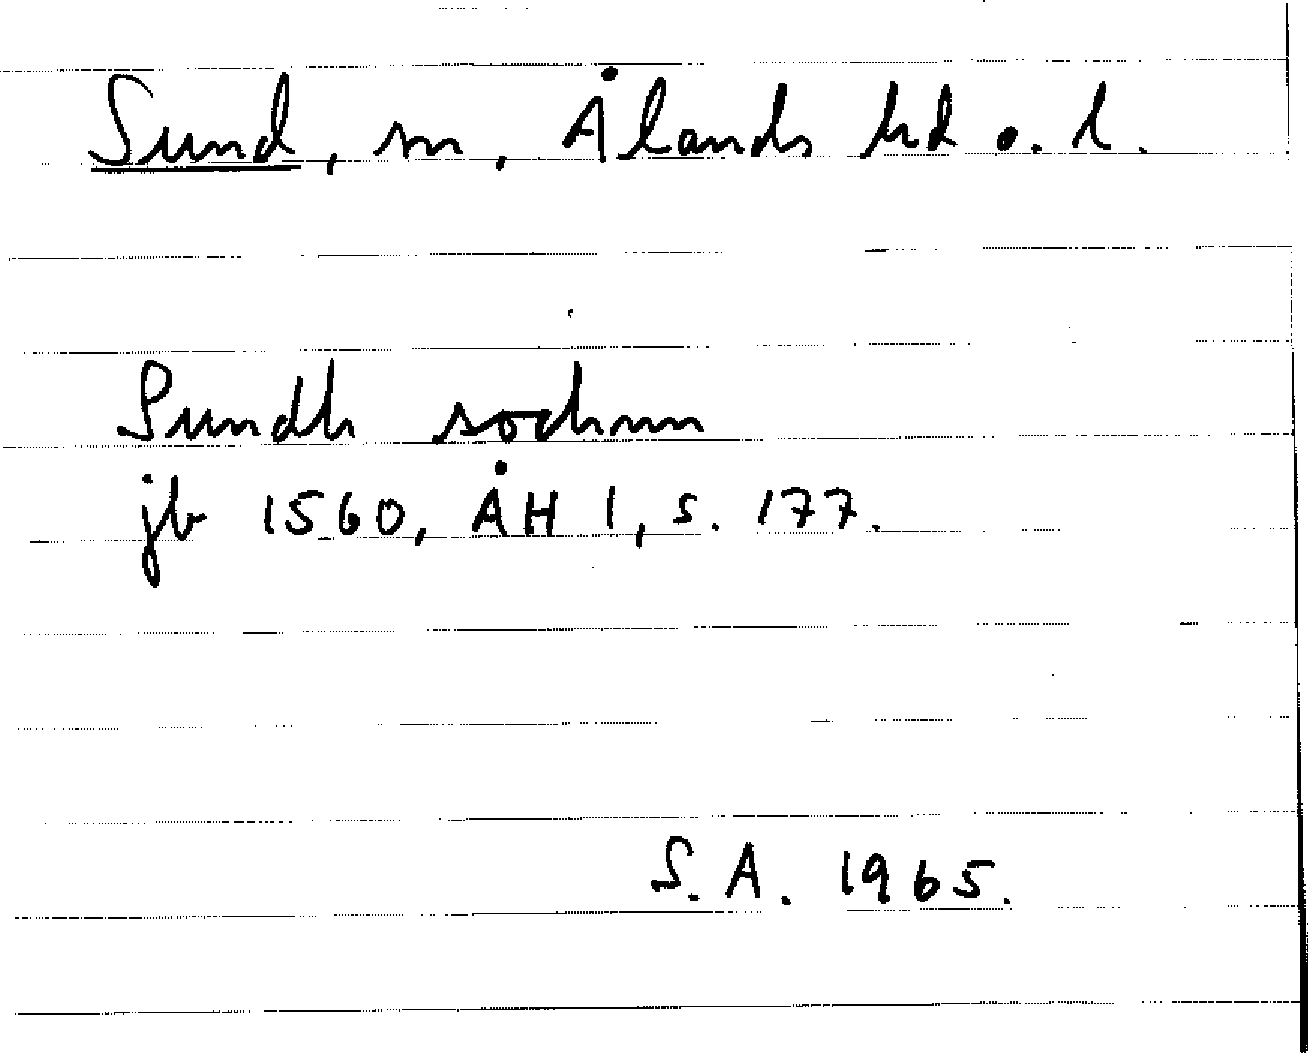 Sund, sn, Ålands hd o. l.
Sundh sochnn
jb 1560, ÅH 1, s. 177.
S.A. 1965.